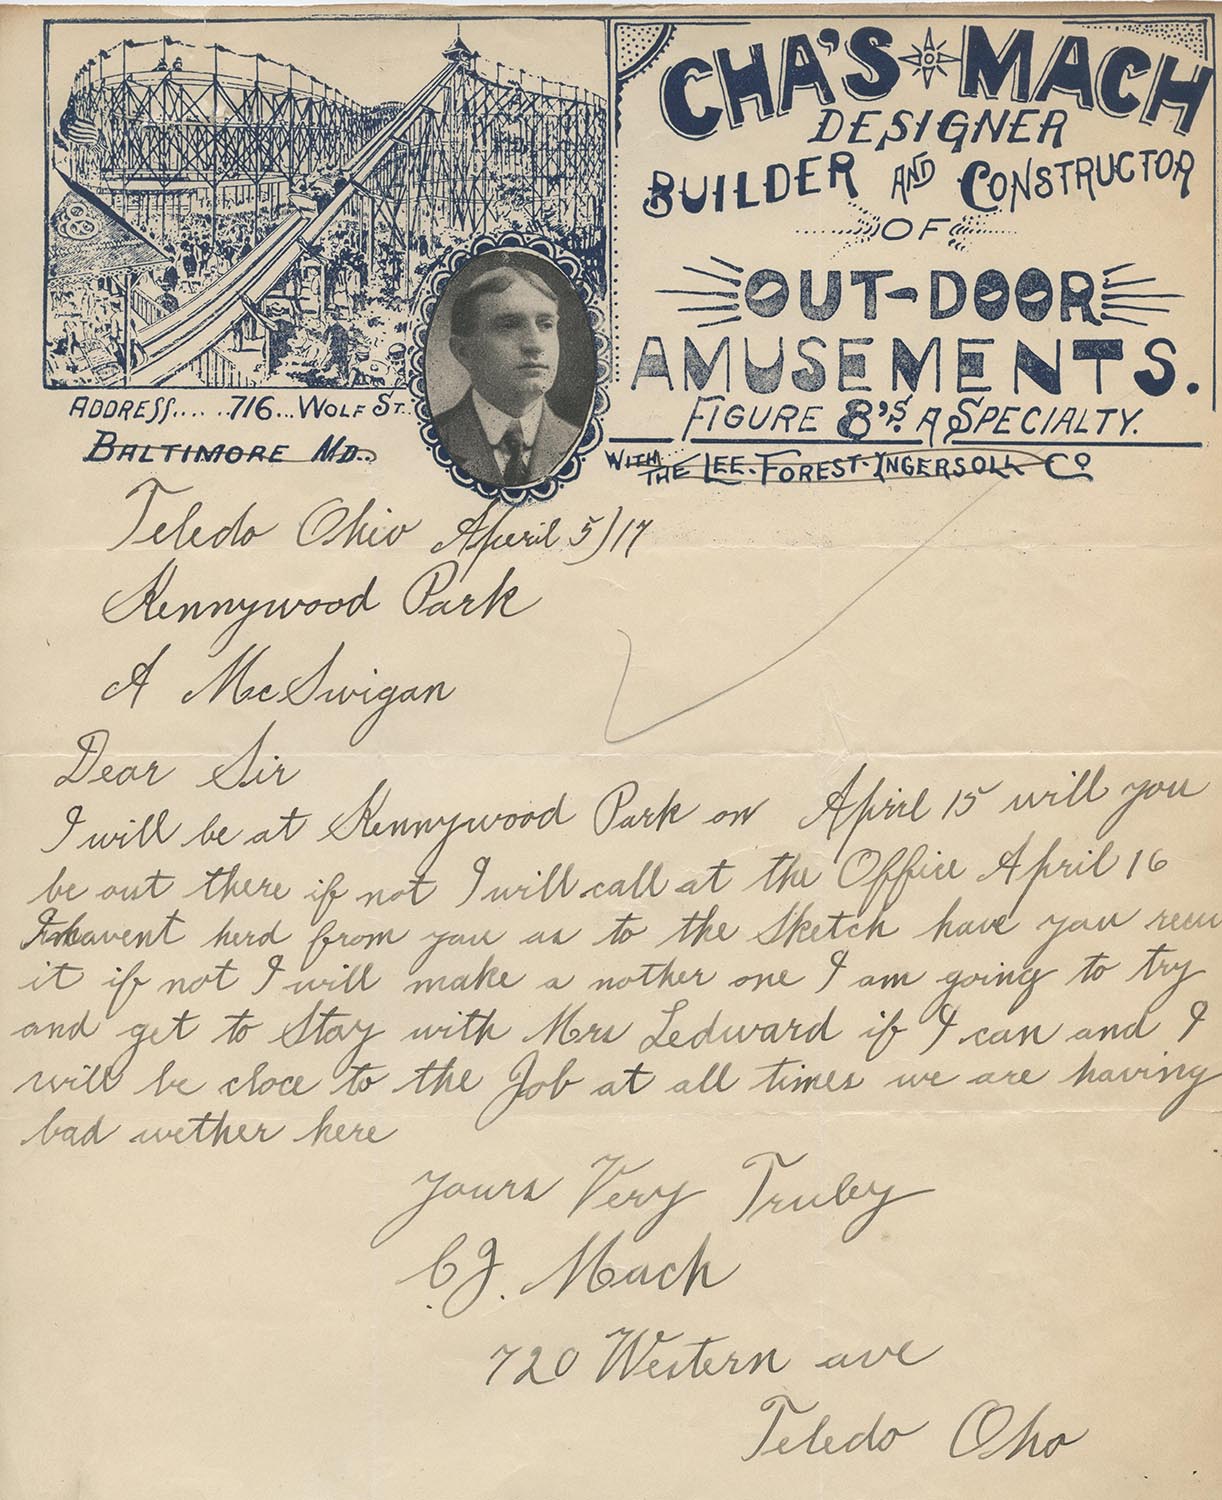 CHA'S MACH
DESIGNER
BUILDER AND CONSTRUCTOR
OF
OUT-DOOR
AMUSEMENTS.
FIGURE 8'S A SPECIALTY.
WITH THE LEE. FOREST-INGERSOLL CO
8
ADDRESS..... 716... WOLF ST.
BALTIMORE MD.
Teledo Ohio April 5/17
Kennywood Park
A McSwigan
Dear Sir
I will be at Kennywood Park on April 15 will you
be out there if not I will call at the Office April 16
havent herd from you as to the Sketch have you
it if not I will make a nother one I am going to try
and get to Stay with Mrs Ledward if I can and I
will be cloce to the Job at all times we are having
bad wether here
Yours Very Truley
C.J. Mach
720 Western ave
Teledo Oho